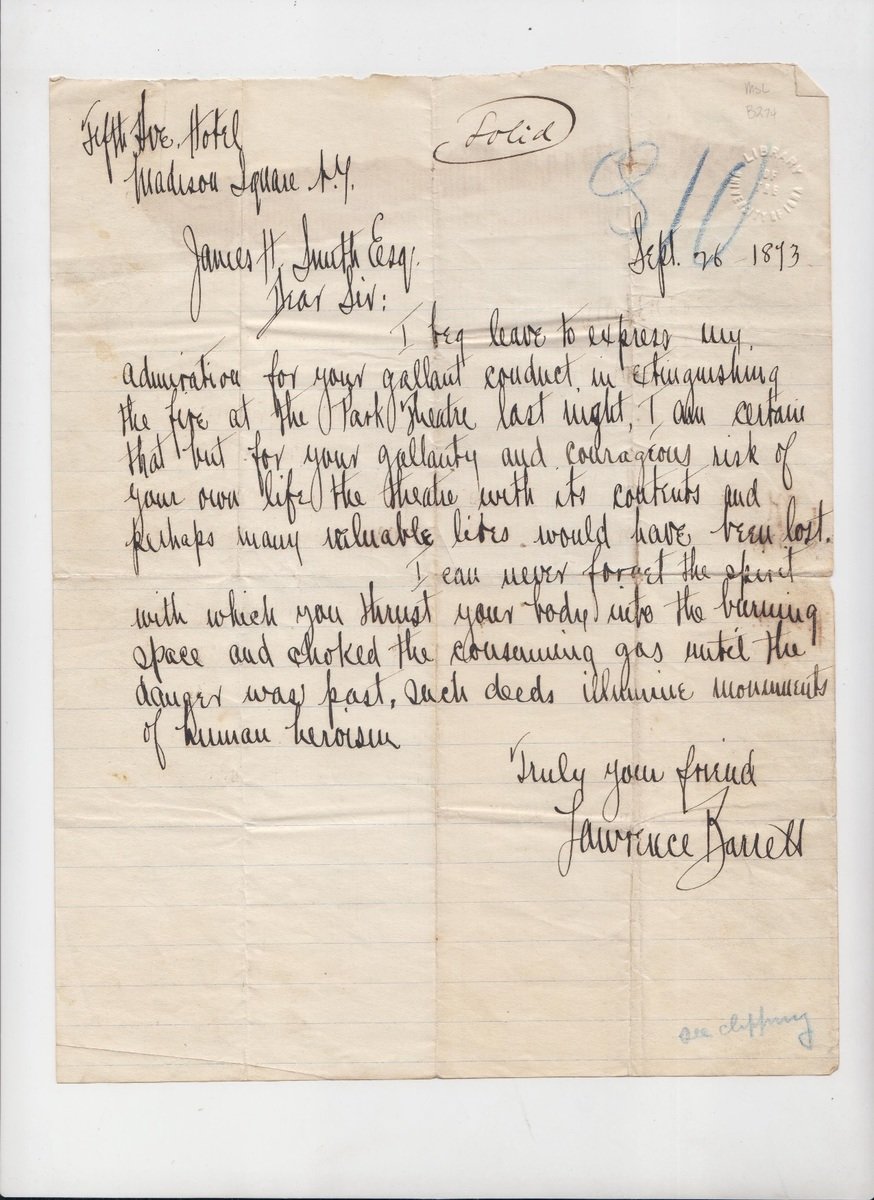 MsL
B274
Fifth Ave. Hotel
Solid
Madison Square N.Y.
810
LIBRARY
Sept. 26 1873
James H. Smith Esq.
Dear Sir:
I beg leave to express my
admiration for your gallant conduct in extinguishing
the fire at the Park Theatre last night, I am certain
that but for your gallantry and courageous risk of
your own life the theatre with its contents and
perhaps many valuable lives would have been lost.
I can never forget the spirit
with which you thrust your body into the burning
space and choked the consuming gas until the
danger was past. Such deeds illumine monuments
of human heroism
Truly your friend
Lawrence Barrett
see clipping